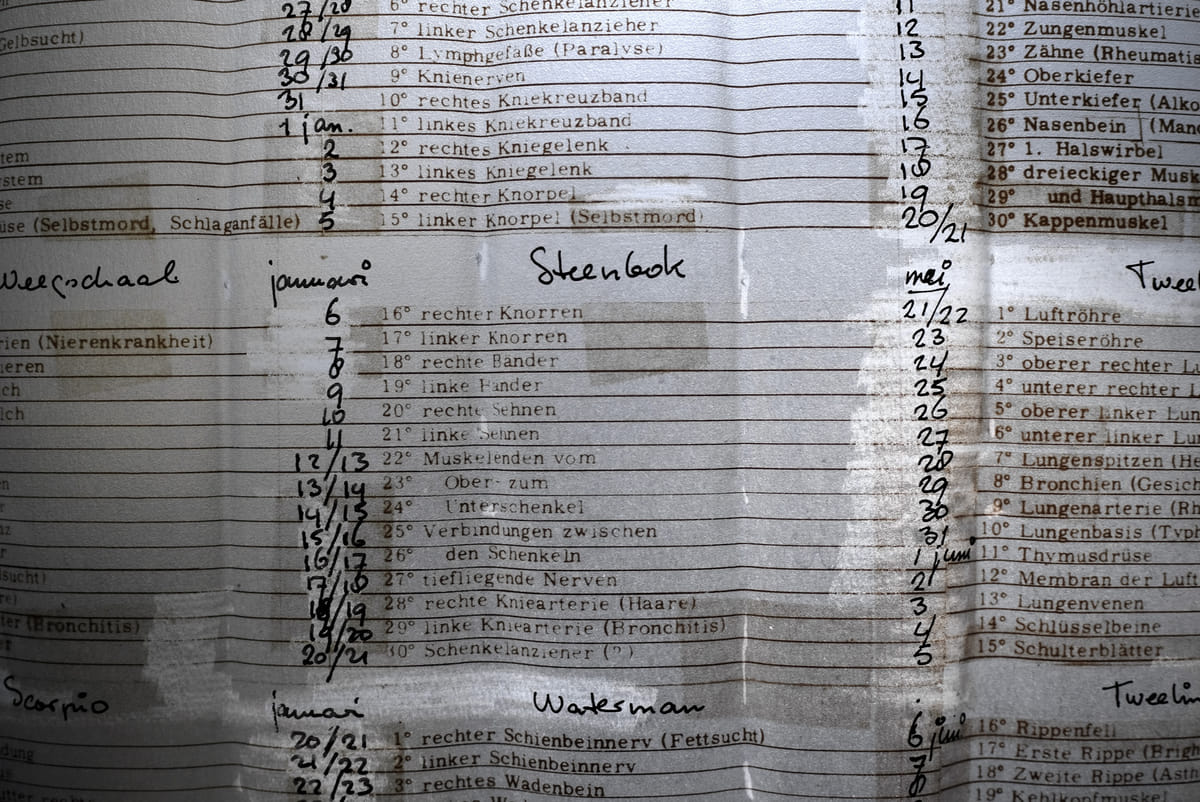 27/28 6° rechter Schenkelanzieher 11 21° Nasenhöhlartierie
Gelbsucht) 28/29 7° linker Schenkelanzieher 12 22° Zungenmuskel
29/30 8° Lymphgefäße (Paralyse) 13 23° Zähne (Rheumatis
30/31 9° Knienerven 14 24° Oberkiefer
31 10° rechtes Kniekreuzband 15 25° Unterkiefer (Alko
1 jan. 11° linkes Kniekreuzband 16 26° Nasenbein (Man
tem 2 12° rechtes Kniegelenk 17 27° 1. Halswirbel
stem 3 13° linkes Kniegelenk 18 28° dreieckiger Musk
se 4 14° rechter Knorpel 19 29° und Haupthalsm
use (Selbstmord, Schlaganfälle) 5 15° linker Knorpel (Selbstmord) 20/21 30° Kappenmuskel
Weegschaal januari Steenbok mei Tweel
6 16° rechter Knorren 21/22 1° Luftröhre
rien (Nierenkrankheit) 7 17° linker Knorren 23 2° Speiseröhre
ieren 8 18° rechte Bänder 24 3° oberer rechter Lu
ch 9 19° linke Bänder 25 4° unterer rechter L
lch 10 20° rechte Sehnen 26 5° oberer linker Lun
11 21° linke Sehnen 27 6° unterer linker Lun
12/13 22° Muskelenden vom 28 7° Lungenspitzen (He
n 13/14 23° Ober- zum 29 8° Bronchien (Gesich
r 14/15 24° Unterschenkel 30 9° Lungenarterie (Rh
nz 15/16 25° Verbindungen zwischen 31 10° Lungenbasis (Typh
r 16/17 26° den Schenkeln 1 juni 11° Thymusdrüse
sucht) 17/18 27° tiefliegende Nerven 2 12° Membran der Luft
re) 18/19 28° rechte Kniearterie (Haare) 3 13° Lungenvenen
ter (Bronchitis) 19/20 29° linke Kniearterie (Bronchitis) 4 14° Schlüsselbeine
20/21 30° Schenkelanziener (?) 5 15° Schulterblätter
Scorpio januari Waterman Tweelin
20/21 1° rechter Schienbeinnerv (Fettsucht) 6 juni 16° Rippenfell
dung 21/22 2° linker Schienbeinnerv 7 17° Erste Rippe (Brigh
22/23 3° rechtes Wadenbein 8 18° Zweite Rippe (Asth
19° Kehlkopfmuskel